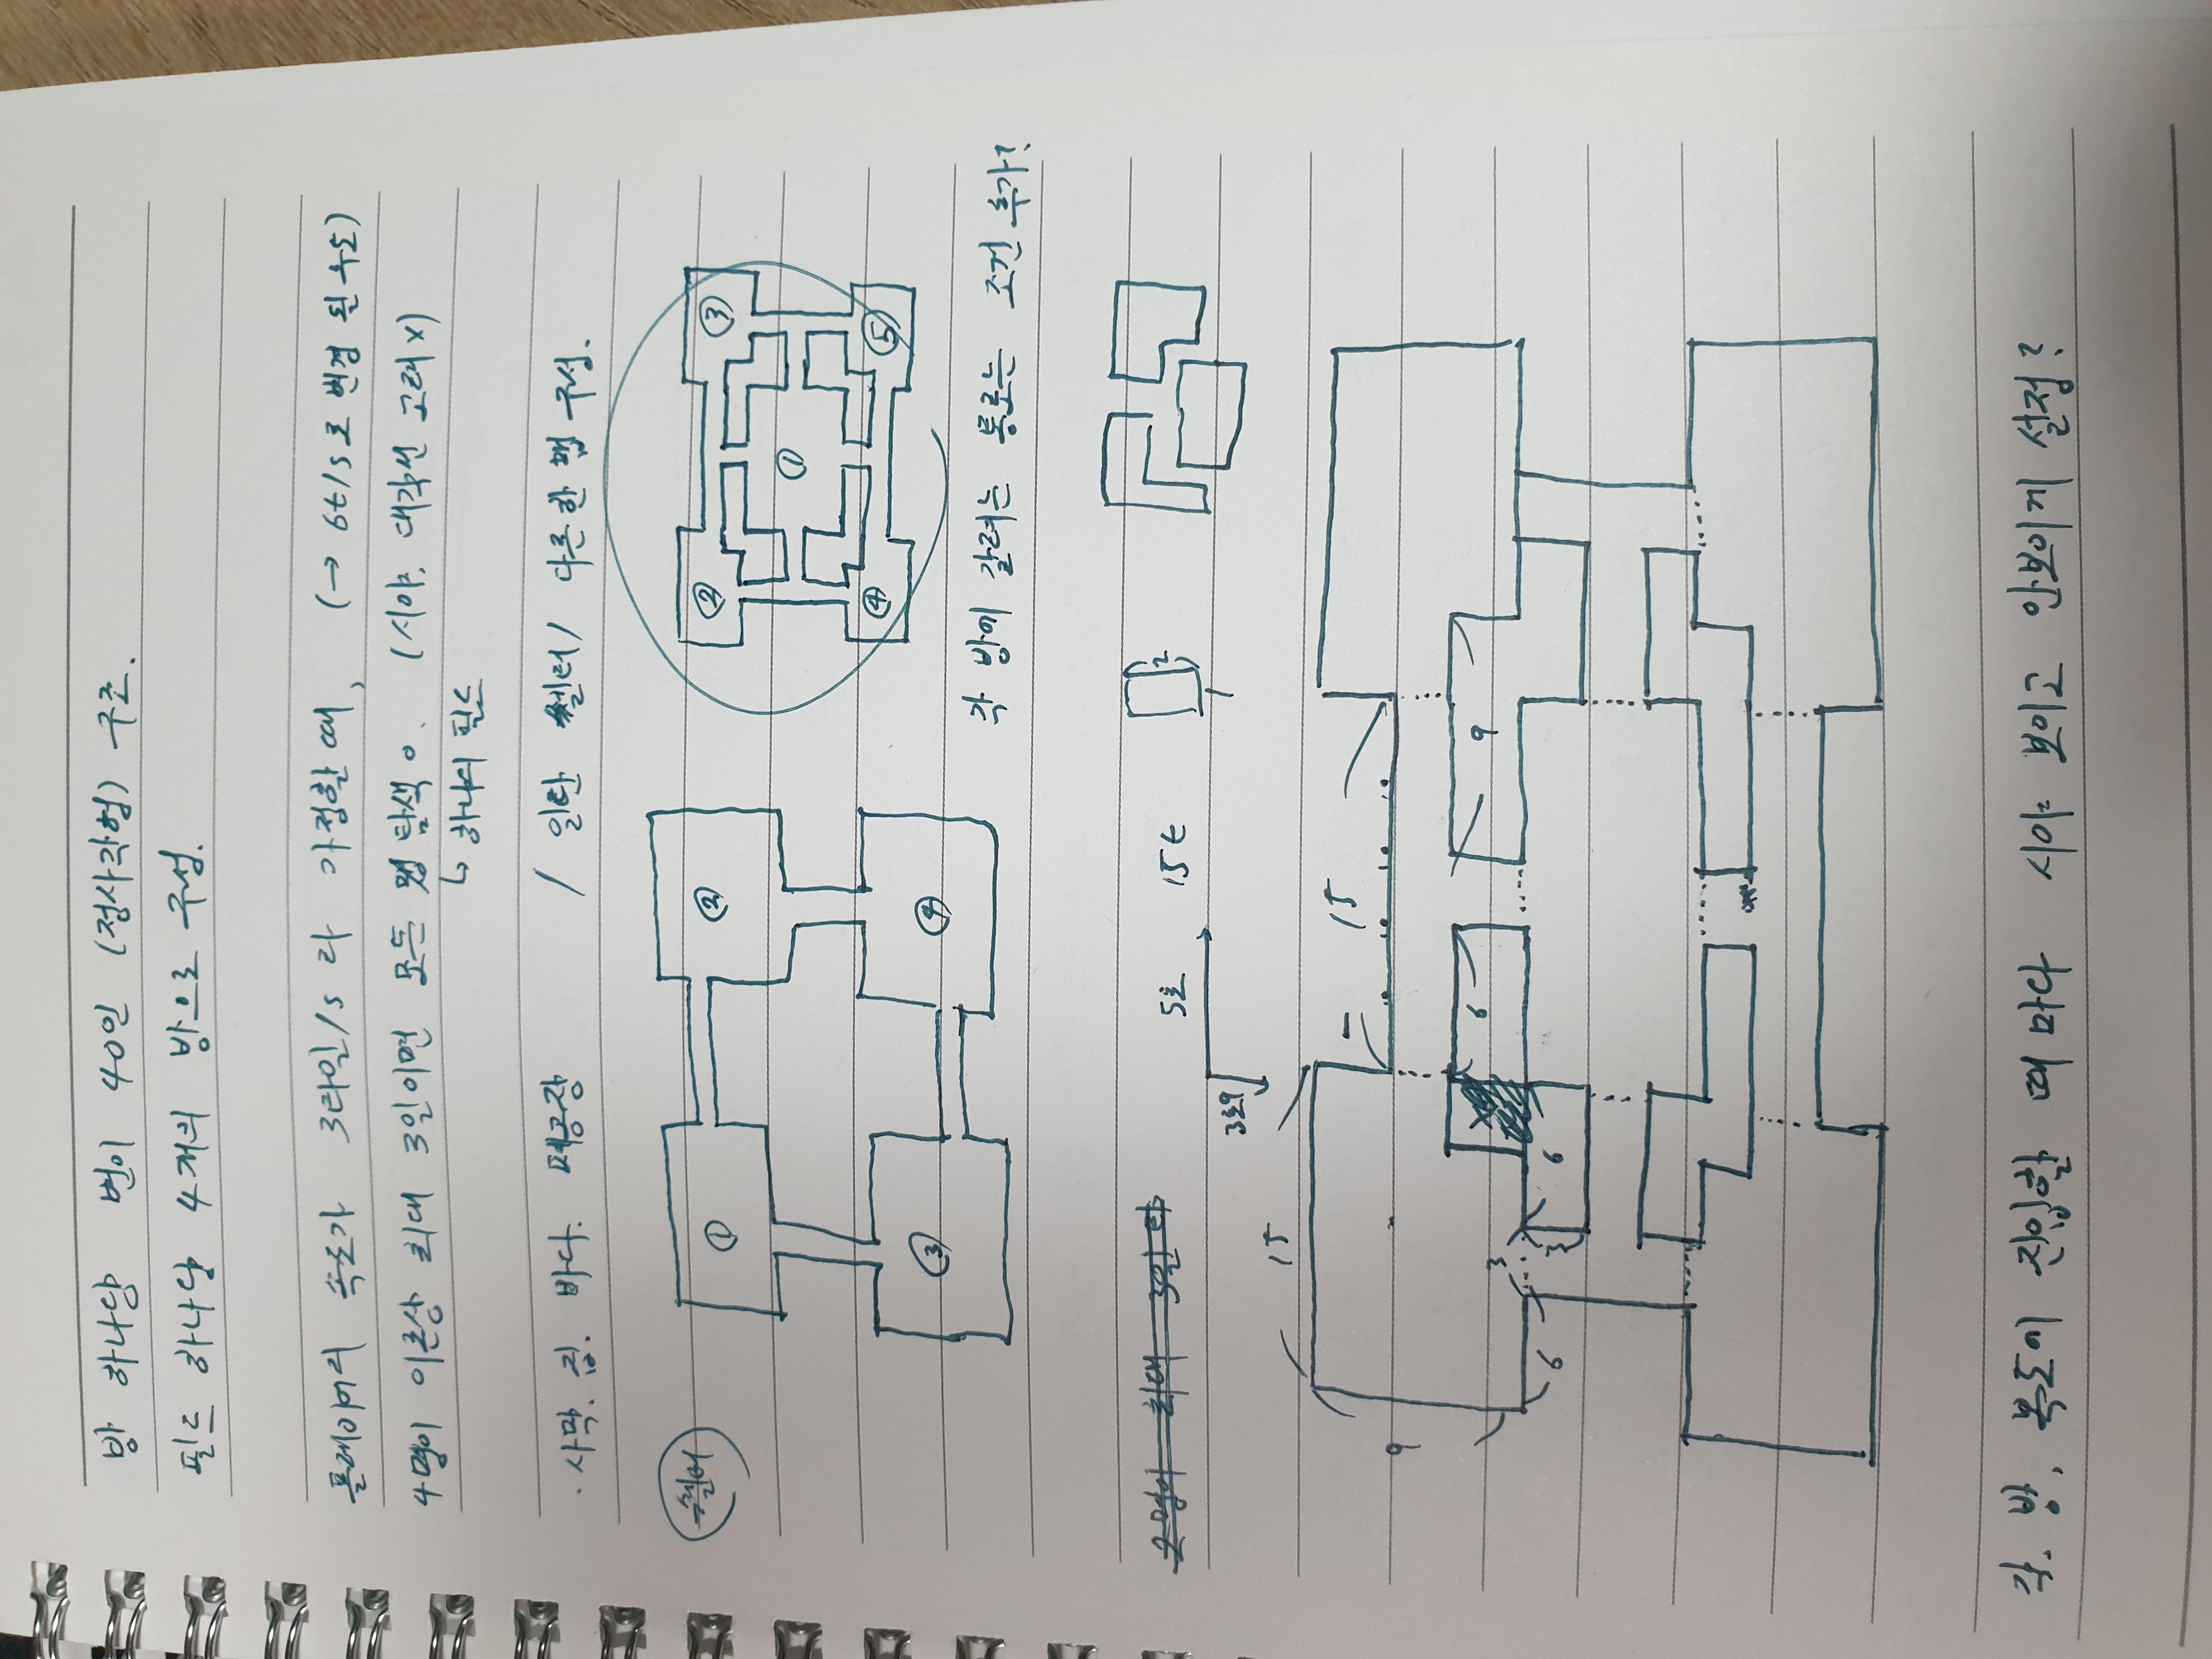 방 하나당 변이 40인 (정사각형) 구조.
필드 하나당 4개의 방으로 구성.
플레이어의 속도가 3타일/s 라 가정할 때, (→ 6t/s로 변경 될 수도)
4명이 이론상 최대 3일이면 모든 맵 탐색 o. (시야, 대각선 고려 x)
↳ 하나의 필드
· 사막. 집. 바다. 폐공장 / 일단 쉘터/ 다른한 맵 구성.
쉘터
① ②
③ ④
② ③
①
④ ⑤
각 방에 갈려는 통로는 조건 추가?
2명이 최대 3일
5초 15t
3초9
2
1
15
15
9
6
9
3
6
3
6
각. 방, 복도에 진입할 때 마다 시야 보이고 안보이게 설정?